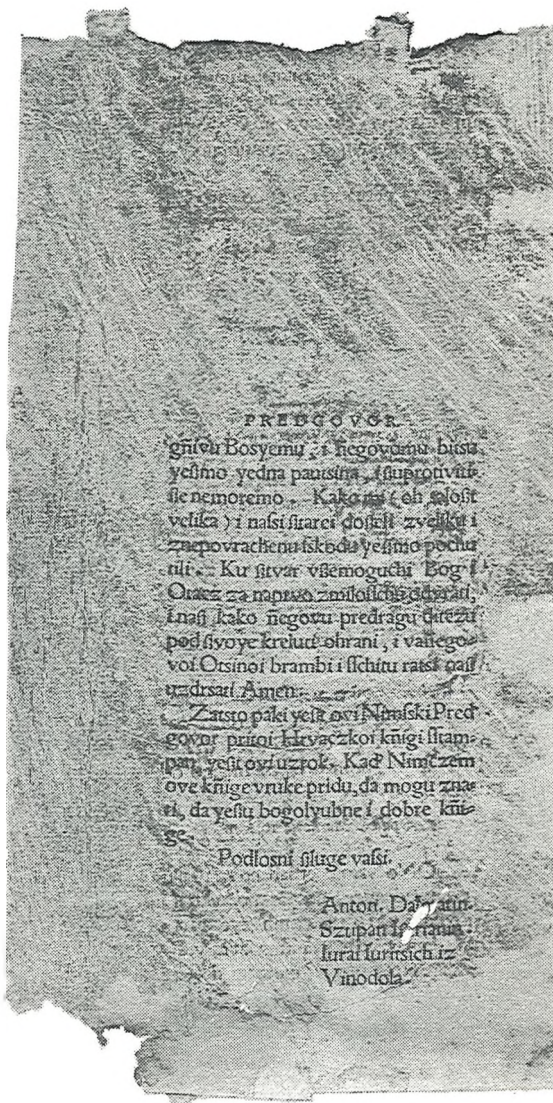 PREDGOVOR.
gńivu Bosyemu, i ńegovomu bitsu
yeſmo yedna pautsina, i ſuprotiviti
ſe nemoremo. Kako mi (oh ſaloſt
velika) i naſſi ſtarei doſeli zveliku i
znepovrachenu ſkodu yeſmo pochu
tili. Ku ſtvar vſſemoguchi Bog i
Otacz za milośchu odvrati,
i nas kako ńegovu predragu ditezu
pod ſvoye kreluti ohrani, i vńego-
voi Otsinoi brambi i ſſchitu ratsi nas
uzdrsati Amen.
Zatsto paki yeſt ovi Nimſki Pred
govor pritoi Hrvaczkoi kńigi ſtam-
pan, yeſt ovi uzrok. Kad Nimczem
ove kńige vruke pridu, da mogu zna-
ti, da yeſu bogolyubne i dobre kńi-
ge.
Podloſni ſluge vaſſi.
Anton. Dalmatin.
Szupan Iſtrianin.
Iurai Iuritſich iz
Vinodola.